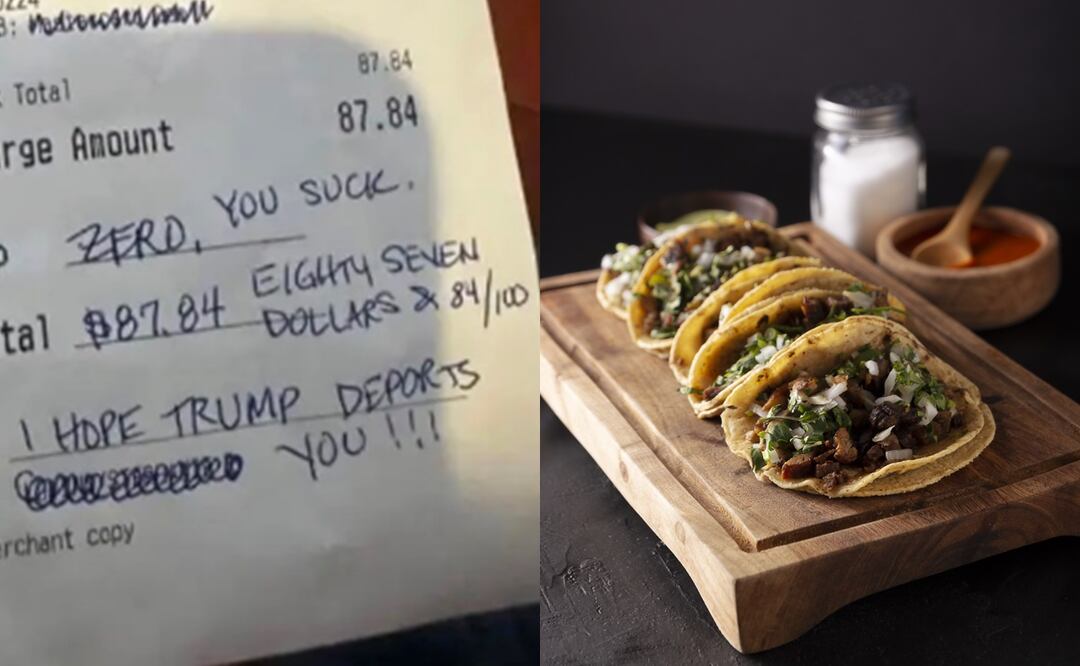 Total
87.84
Amount
87.84
ZERO, YOU SUCK.
$87.84 EIGHTY SEVEN
DOLLARS & 84/100
I HOPE TRUMP DEPORTS
YOU !!!
copy